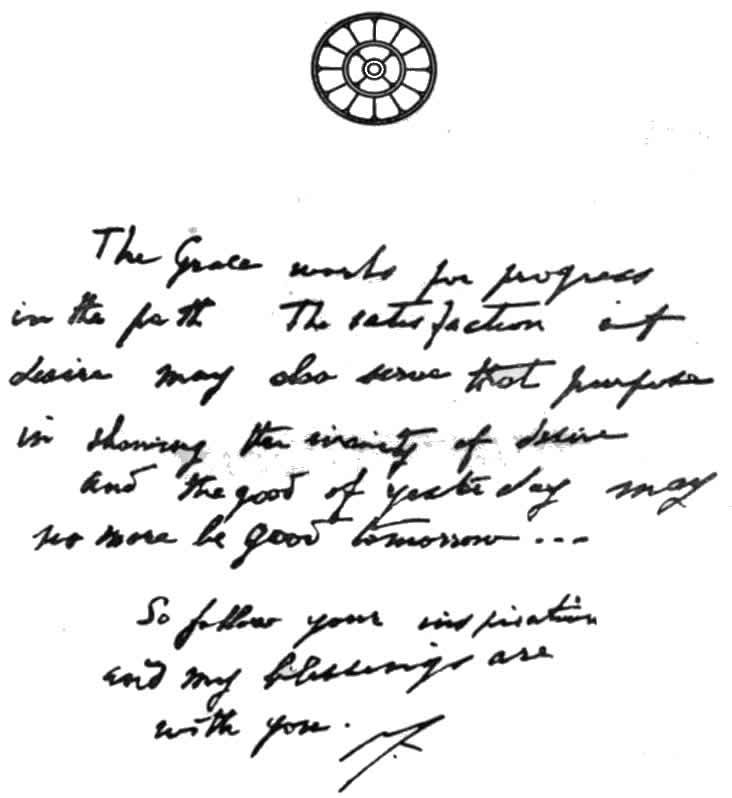 The Grace works for progress
in the path The satisfaction of
desire may also serve that purpose
in showing the inanity of desire
and the good of yesterday may
no more be good tomorrow ...
So follow your inspiration
and my blessings are
with you.